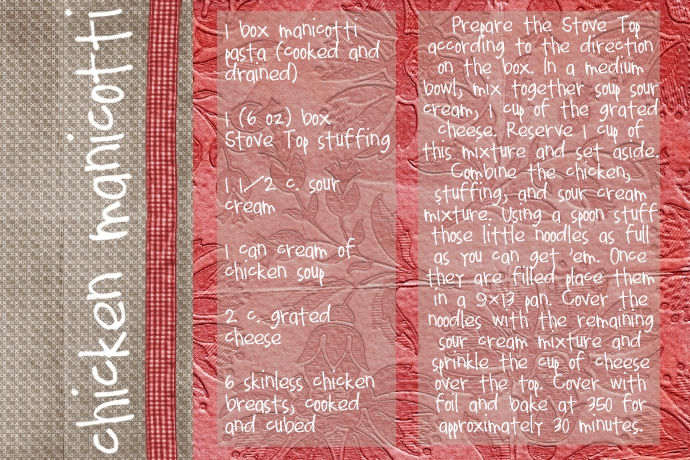 chicken manicotti
1 box manicotti
pasta (cooked and
drained)
1 (6 oz) box
Stove Top stuffing
1 1/2 c. sour
cream
1 can cream of
chicken soup
2 c. grated
cheese
6 skinless chicken
breasts, cooked
and cubed
Prepare the Stove Top
according to the direction
on the box. In a medium
bowl, mix together soup sour
cream, 1 cup of the grated
cheese. Reserve 1 cup of
this mixture and set aside.
Combine the chicken,
stuffing, and sour cream
mixture. Using a spoon stuff
those little noodles as full
as you can get 'em. Once
they are filled place them
in a 9x13 pan. Cover the
noodles with the remaining
sour cream mixture and
sprinkle the cup of cheese
over the top. Cover with
foil and bake at 350 for
approximately 30 minutes.